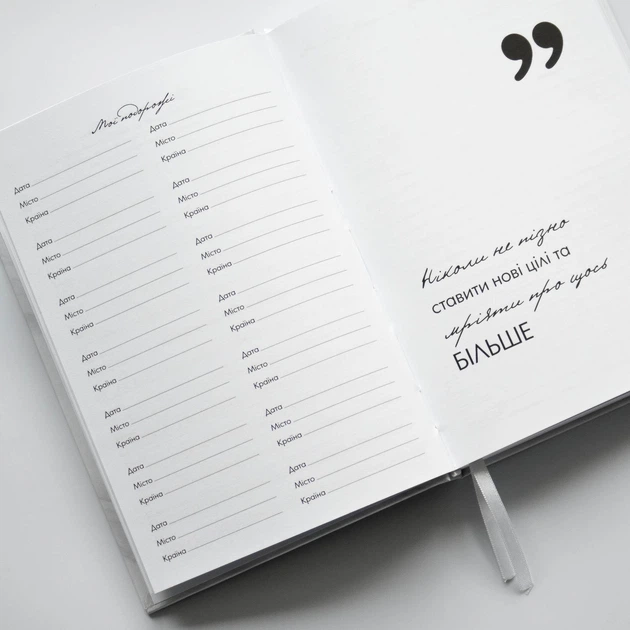 Мої подорожі
Дата
Місто
Країна
Дата
Місто
Країна
Дата
Місто
Країна
Дата
Місто
Країна
Дата
Місто
Країна
Дата
Місто
Країна
Дата
Місто
Країна
Дата
Місто
Країна
Дата
Місто
Країна
Дата
Місто
Країна
Дата
Місто
Країна
Дата
Місто
Країна
Дата
Місто
Країна
Дата
Місто
Країна
”
Ніколи не пізно
ставити нові цілі та
мріяти про щось
БІЛЬШЕ